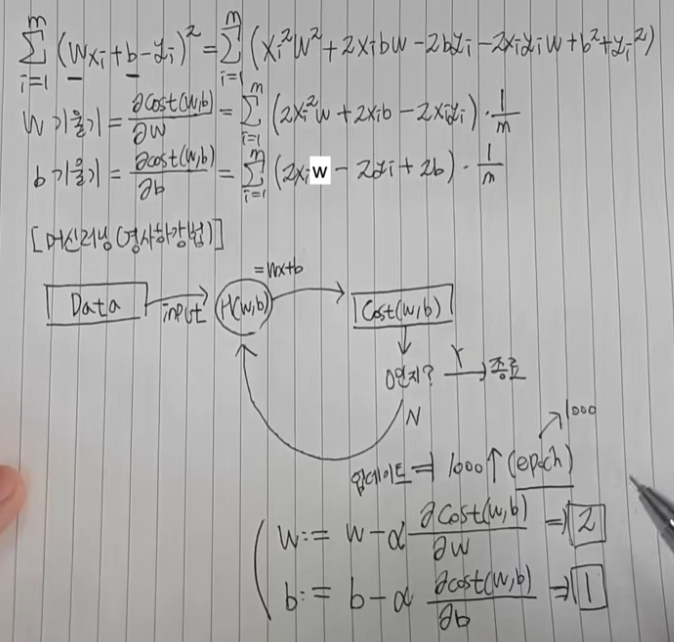 m∑i=1 (wxi+b-yi)² = m∑i=1 (xi²w²+2xibw-2byi-2xiyiw+b²+yi²)
w 기울기 = ∂cost(w,b)/∂w = m∑i=1 (2xi²w+2xib-2xiyi)·1/m
b 기울기 = ∂cost(w,b)/∂b = m∑i=1 (2xiw-2yi+2b)·1/m
[머신러닝(경사하강법)]
=wx+b
Data input H(w,b) Cost(w,b)
0인지? Y 종료
N
1000
업데이트 ⇒ 1000↑ (epoch)
w:= w-α ∂cost(w,b)/∂w ⇒ 2
b:= b-α ∂cost(w,b)/∂b ⇒ 1